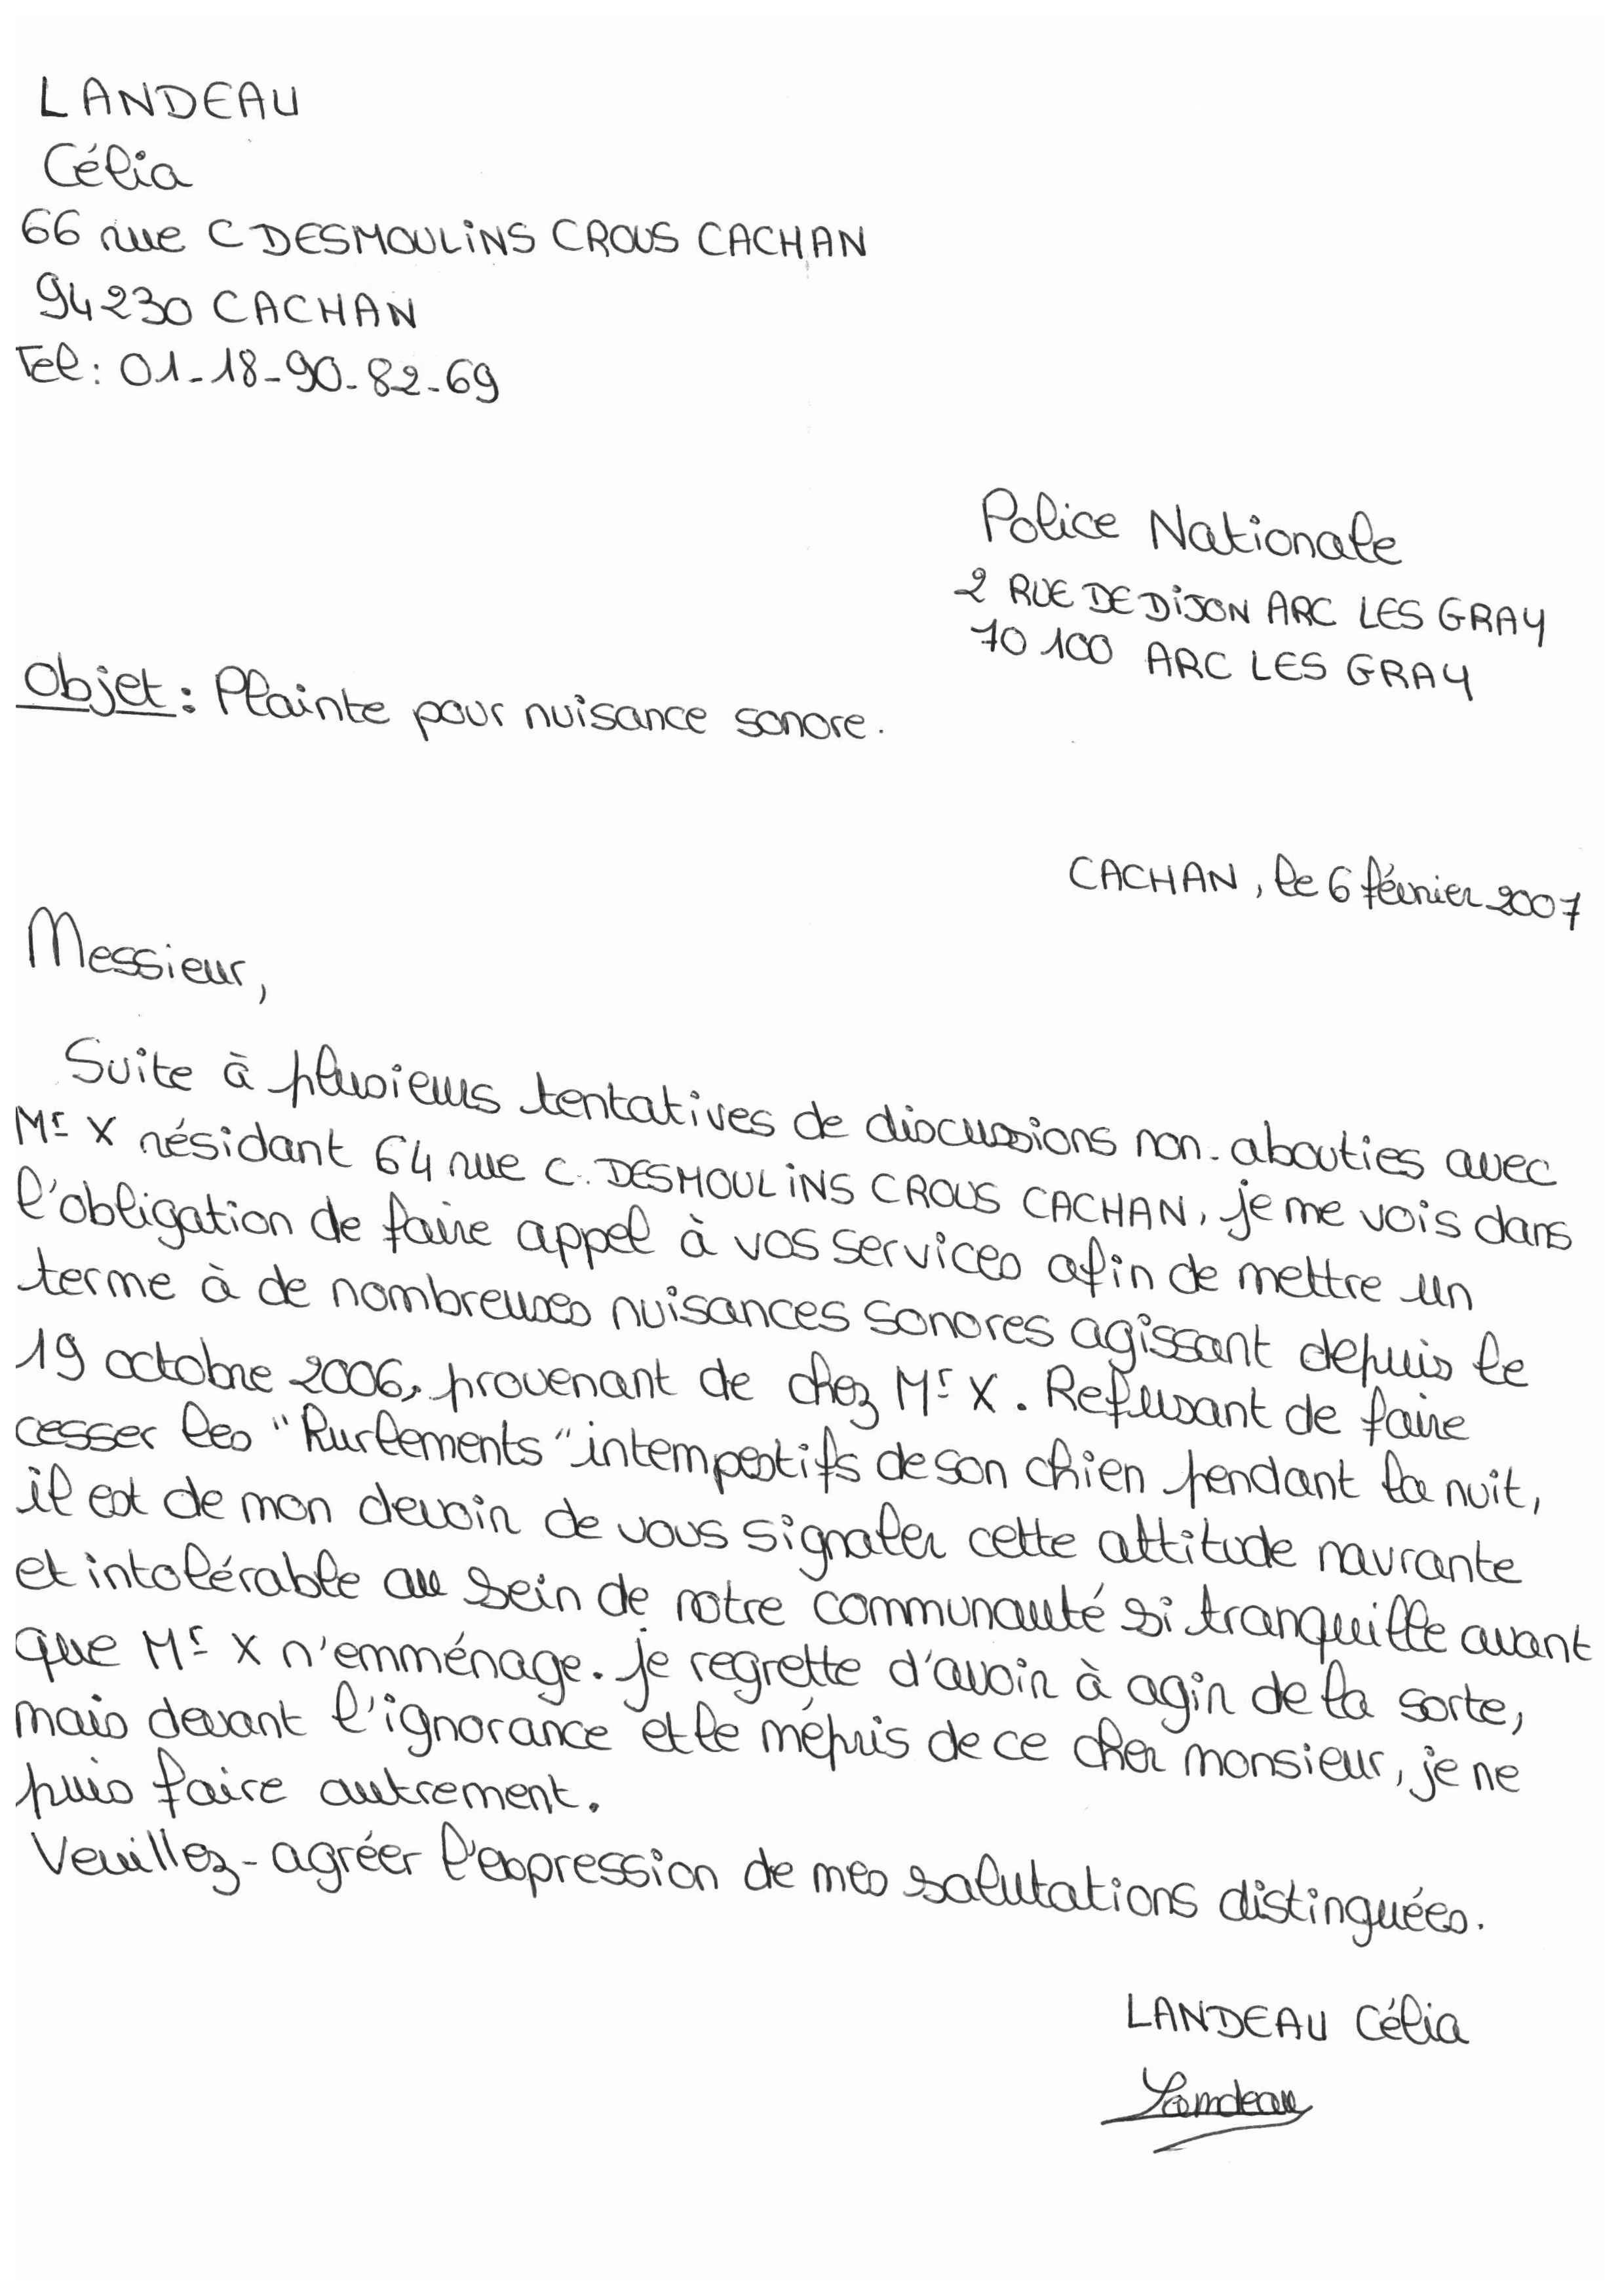 LANDEAU
Célia
66 rue C DESMOULINS CROUS CACHAN
94230 CACHAN
Tel : 01-18-90-82-69
Police Nationale
2 RUE DE DIJON ARC LES GRAY
70 100 ARC LES GRAY
Objet : Plainte pour nuisance sonore.
CACHAN, le 6 février 2007
Messieur,
Suite à plusieurs tentatives de discussions non-abouties avec
Mr X résidant 64 rue C. DESMOULINS CROUS CACHAN, je me vois dans
l'obligation de faire appel à vos services afin de mettre un
terme à de nombreuses nuisances sonores agissant depuis le
19 octobre 2006, provenant de chez Mr X. Refusant de faire
cesser les "Rurlements" intempestifs de son chien pendant la nuit,
il est de mon devoir de vous signaler cette attitude navrante
et intolérable au sein de notre communauté si tranquille avant
que Mr X n'emménage. je regrette d'avoir à agir de la sorte,
mais devant l'ignorance et le mépris de ce cher monsieur, je ne
puis faire autrement.
Veuillez-agréer l'expression de mes salutations distinguées.
LANDEAU Célia
Landeau